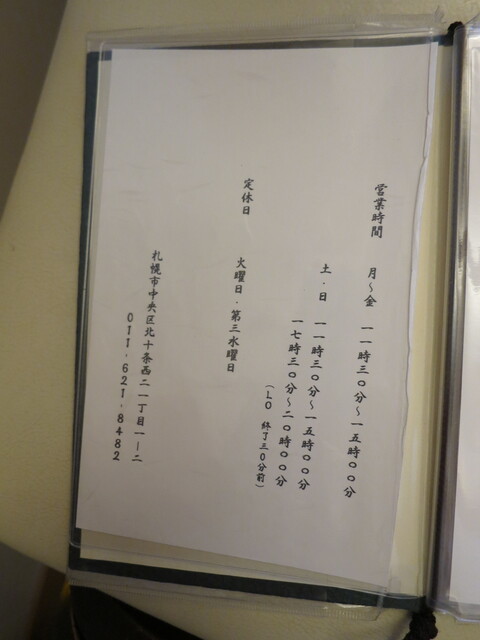 営業時間 月～金 一一時三〇分～一五時〇〇分
土・日 一一時三〇分～一五時〇〇分
一七時三〇分～二〇時〇〇分
(LO 終了三〇分前)
定休日 火曜日・第三水曜日
札幌市中央区北十条西二一丁目一ー二
011・621・8482